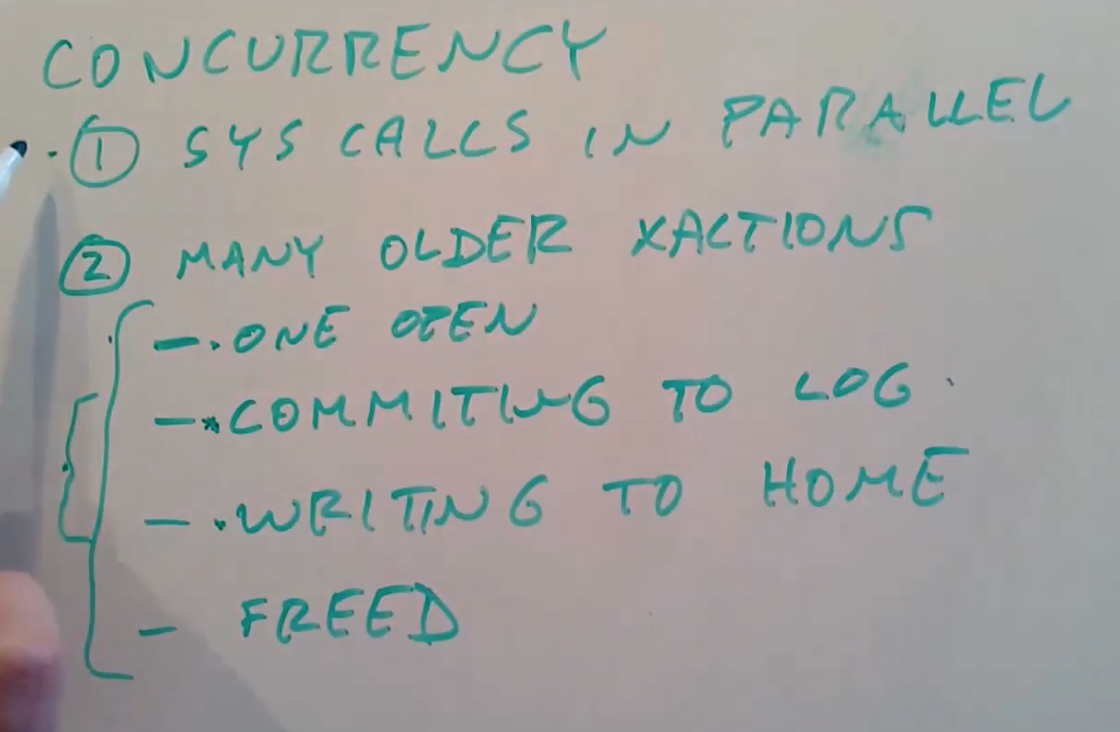 CONCURRENCY
① SYS CALLS IN PARALLEL
② MANY OLDER XACTIONS
- ONE OPEN
- COMMITING TO LOG
- WRITING TO HOME
- FREED